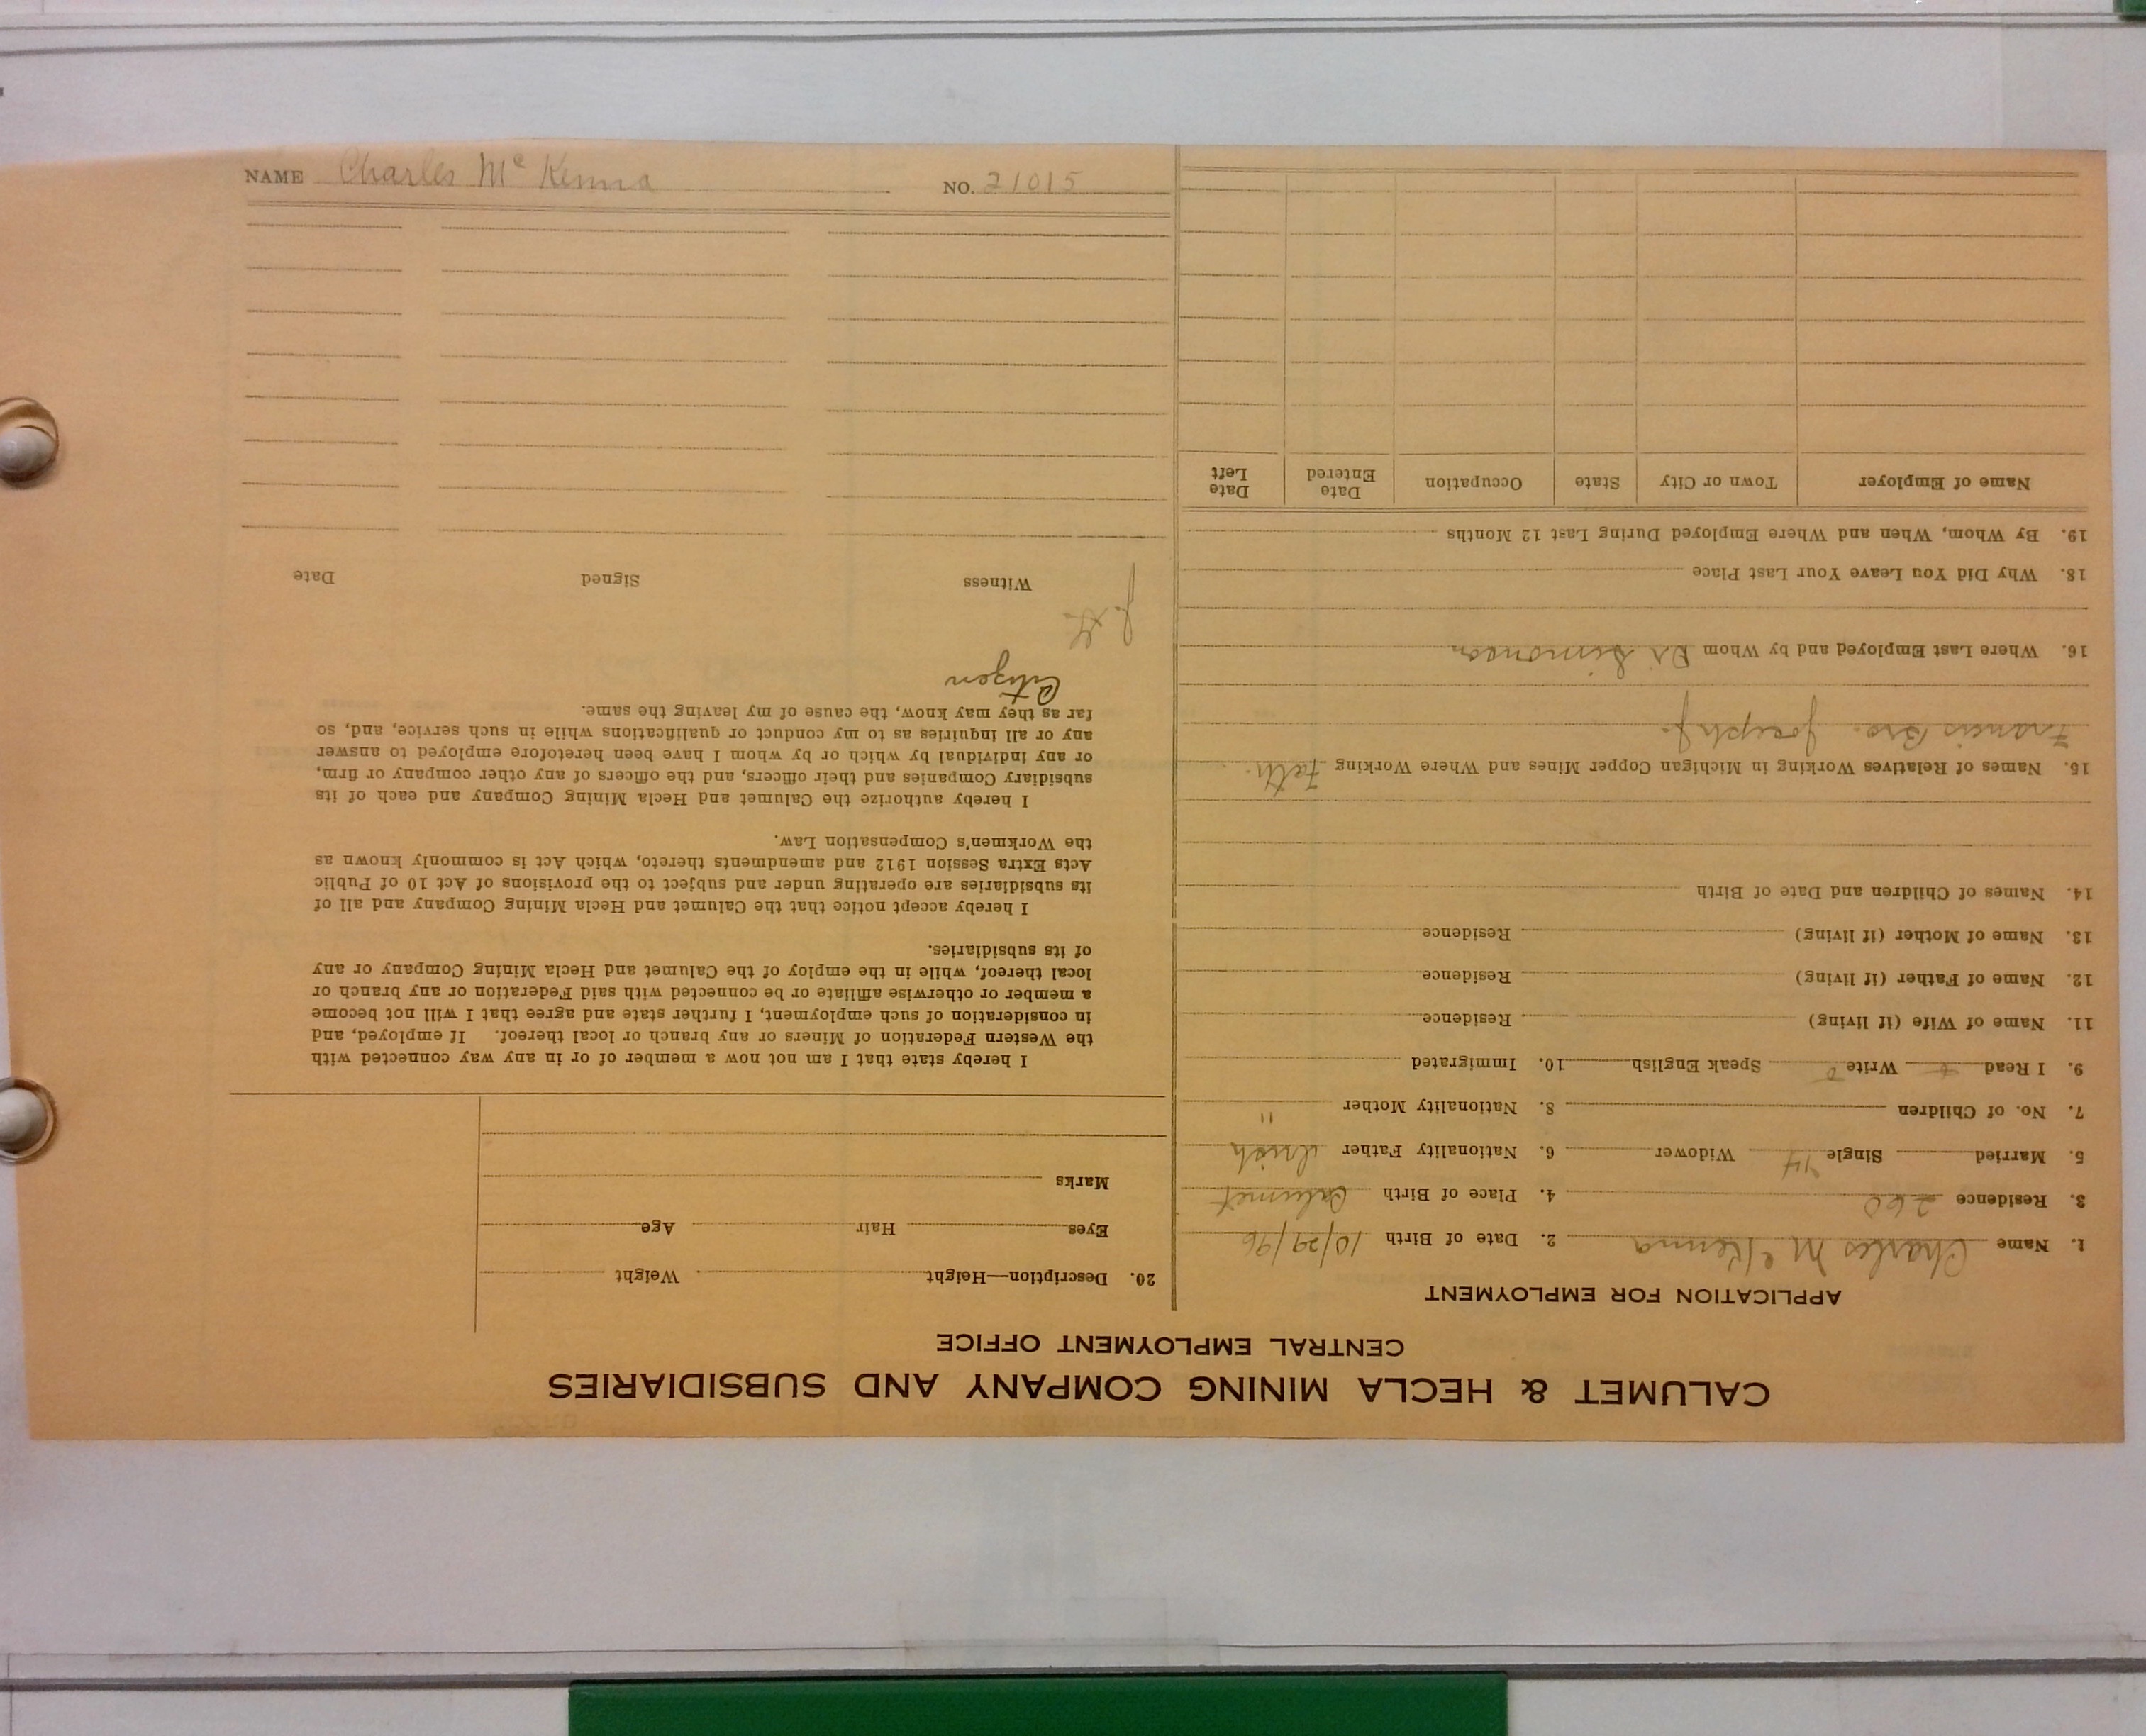 CALUMET & HECLA MINING COMPANY AND SUBSIDIARIES
CENTRAL EMPLOYMENT OFFICE
APPLICATION FOR EMPLOYMENT
1. Name Charles McKenna 2. Date of Birth 10/29/96
3. Residence 260 4. Place of Birth Calumet
5. Married Single Widower 6. Nationality Father Irish
7. No. of Children 8. Nationality Mother "
9. I Read Write Speak English 10. Immigrated
11. Name of Wife (if living) Residence
12. Name of Father (if living) Residence
13. Name of Mother (if living) Residence
14. Names of Children and Date of Birth
15. Names of Relatives Working in Michigan Copper Mines and Where Working Fath.
Francis Bro. Joseph J.
16. Where Last Employed and by Whom Simonson
18. Why Did You Leave Your Last Place
19. By Whom, When and Where Employed During Last 12 Months
Name of Employer Town or City State Occupation Date Entered Date Left
20. Description—Height Weight
Eyes Hair Age
Marks
I hereby state that I am not now a member of or in any way connected with
the Western Federation of Miners or any branch or local thereof. If employed, and
in consideration of such employment, I further state and agree that I will not become
a member or otherwise affiliate or be connected with said Federation or any branch or
local thereof, while in the employ of the Calumet and Hecla Mining Company or any
of its subsidiaries.
I hereby accept notice that the Calumet and Hecla Mining Company and all of
its subsidiaries are operating under and subject to the provisions of Act 10 of Public
Acts Extra Session 1912 and amendments thereto, which Act is commonly known as
the Workmen's Compensation Law.
I hereby authorize the Calumet and Hecla Mining Company and each of its
subsidiary Companies and their officers, and the officers of any other company or firm,
or any individual by which or by whom I have been heretofore employed to answer
any or all inquiries as to my conduct or qualifications while in such service, and, so
far as they may know, the cause of my leaving the same.
Citizen
Witness Signed Date
NAME Charles McKenna NO. 21015